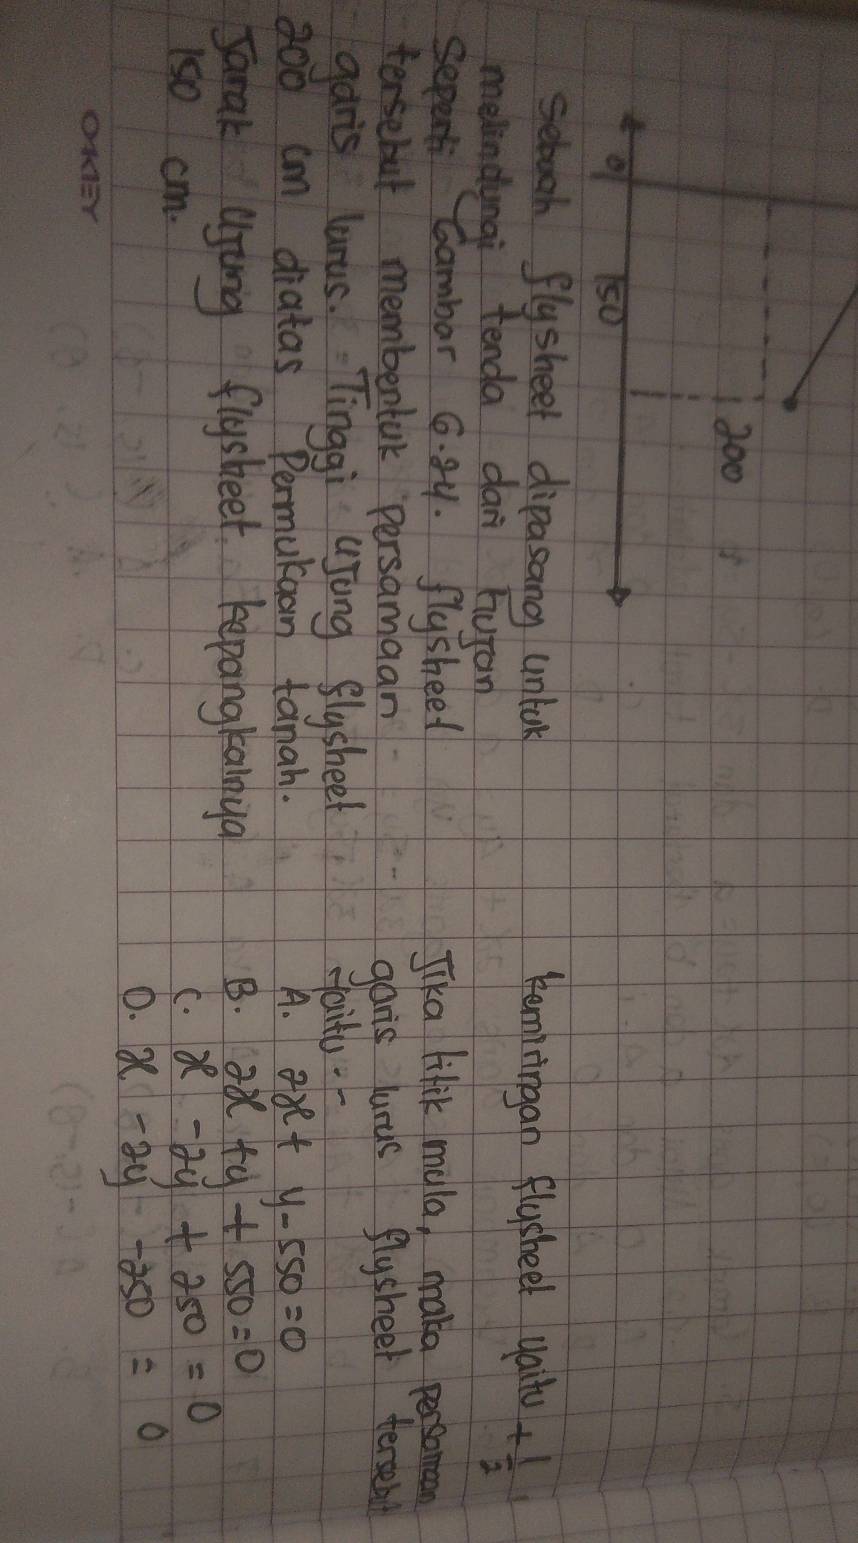 200
0
150
Sebuah flysheet dipasang untuk
melindungi tenda dari hujan
seperti Gambar 6.24. flysheet
tersebut membentuk persamaan
garis lurus. Tinggi ujung flysheet
200 cm diatas Permukaan tanah.
Jarak ujung flysheet kepangkalnya
150 cm.
kemiringan flysheet yaitu + 1/2
Jika titik mula, maka persamaan
garis lurus flysheet tersebut
yaitu --
A. 2x + y - 550 = 0
B. 2x + y + 550 = 0
C. x - 2y + 250 = 0
D. x - 2y - 250 = 0
OKEY